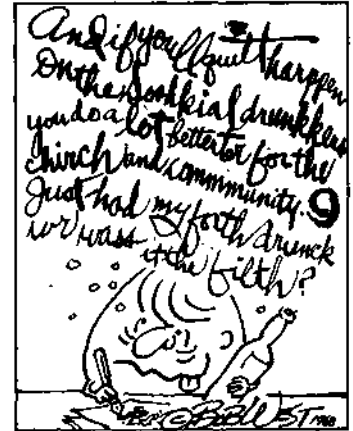 And if you'll quit harppen
On the soshkial drunkkers
you do a lot better for the
chirch and commimunity. 9
Just had my forth drunck
wr wass it the filth?
© BOB WEST 1968